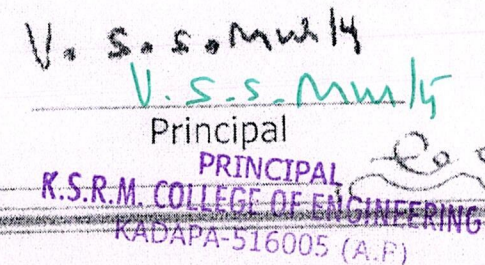 V. S. S. Murty
V. S. S. Murty
Principal
PRINCIPAL
K.S.R.M. COLLEGE OF ENGINEERING
KADAPA-516005 (A.P)